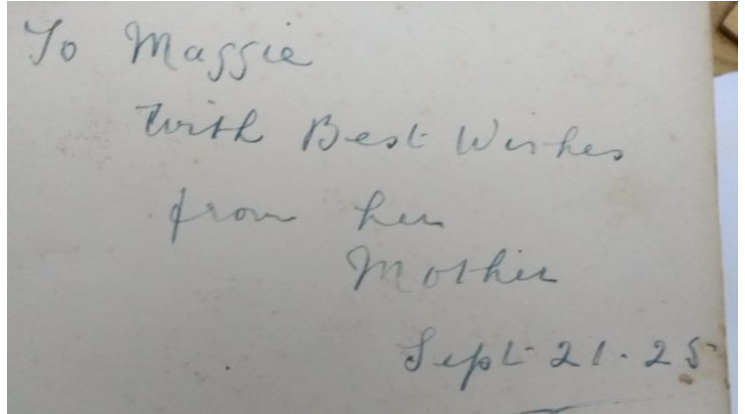 To Maggie
With Best Wishes
from her
Mother
Sept 21. 25